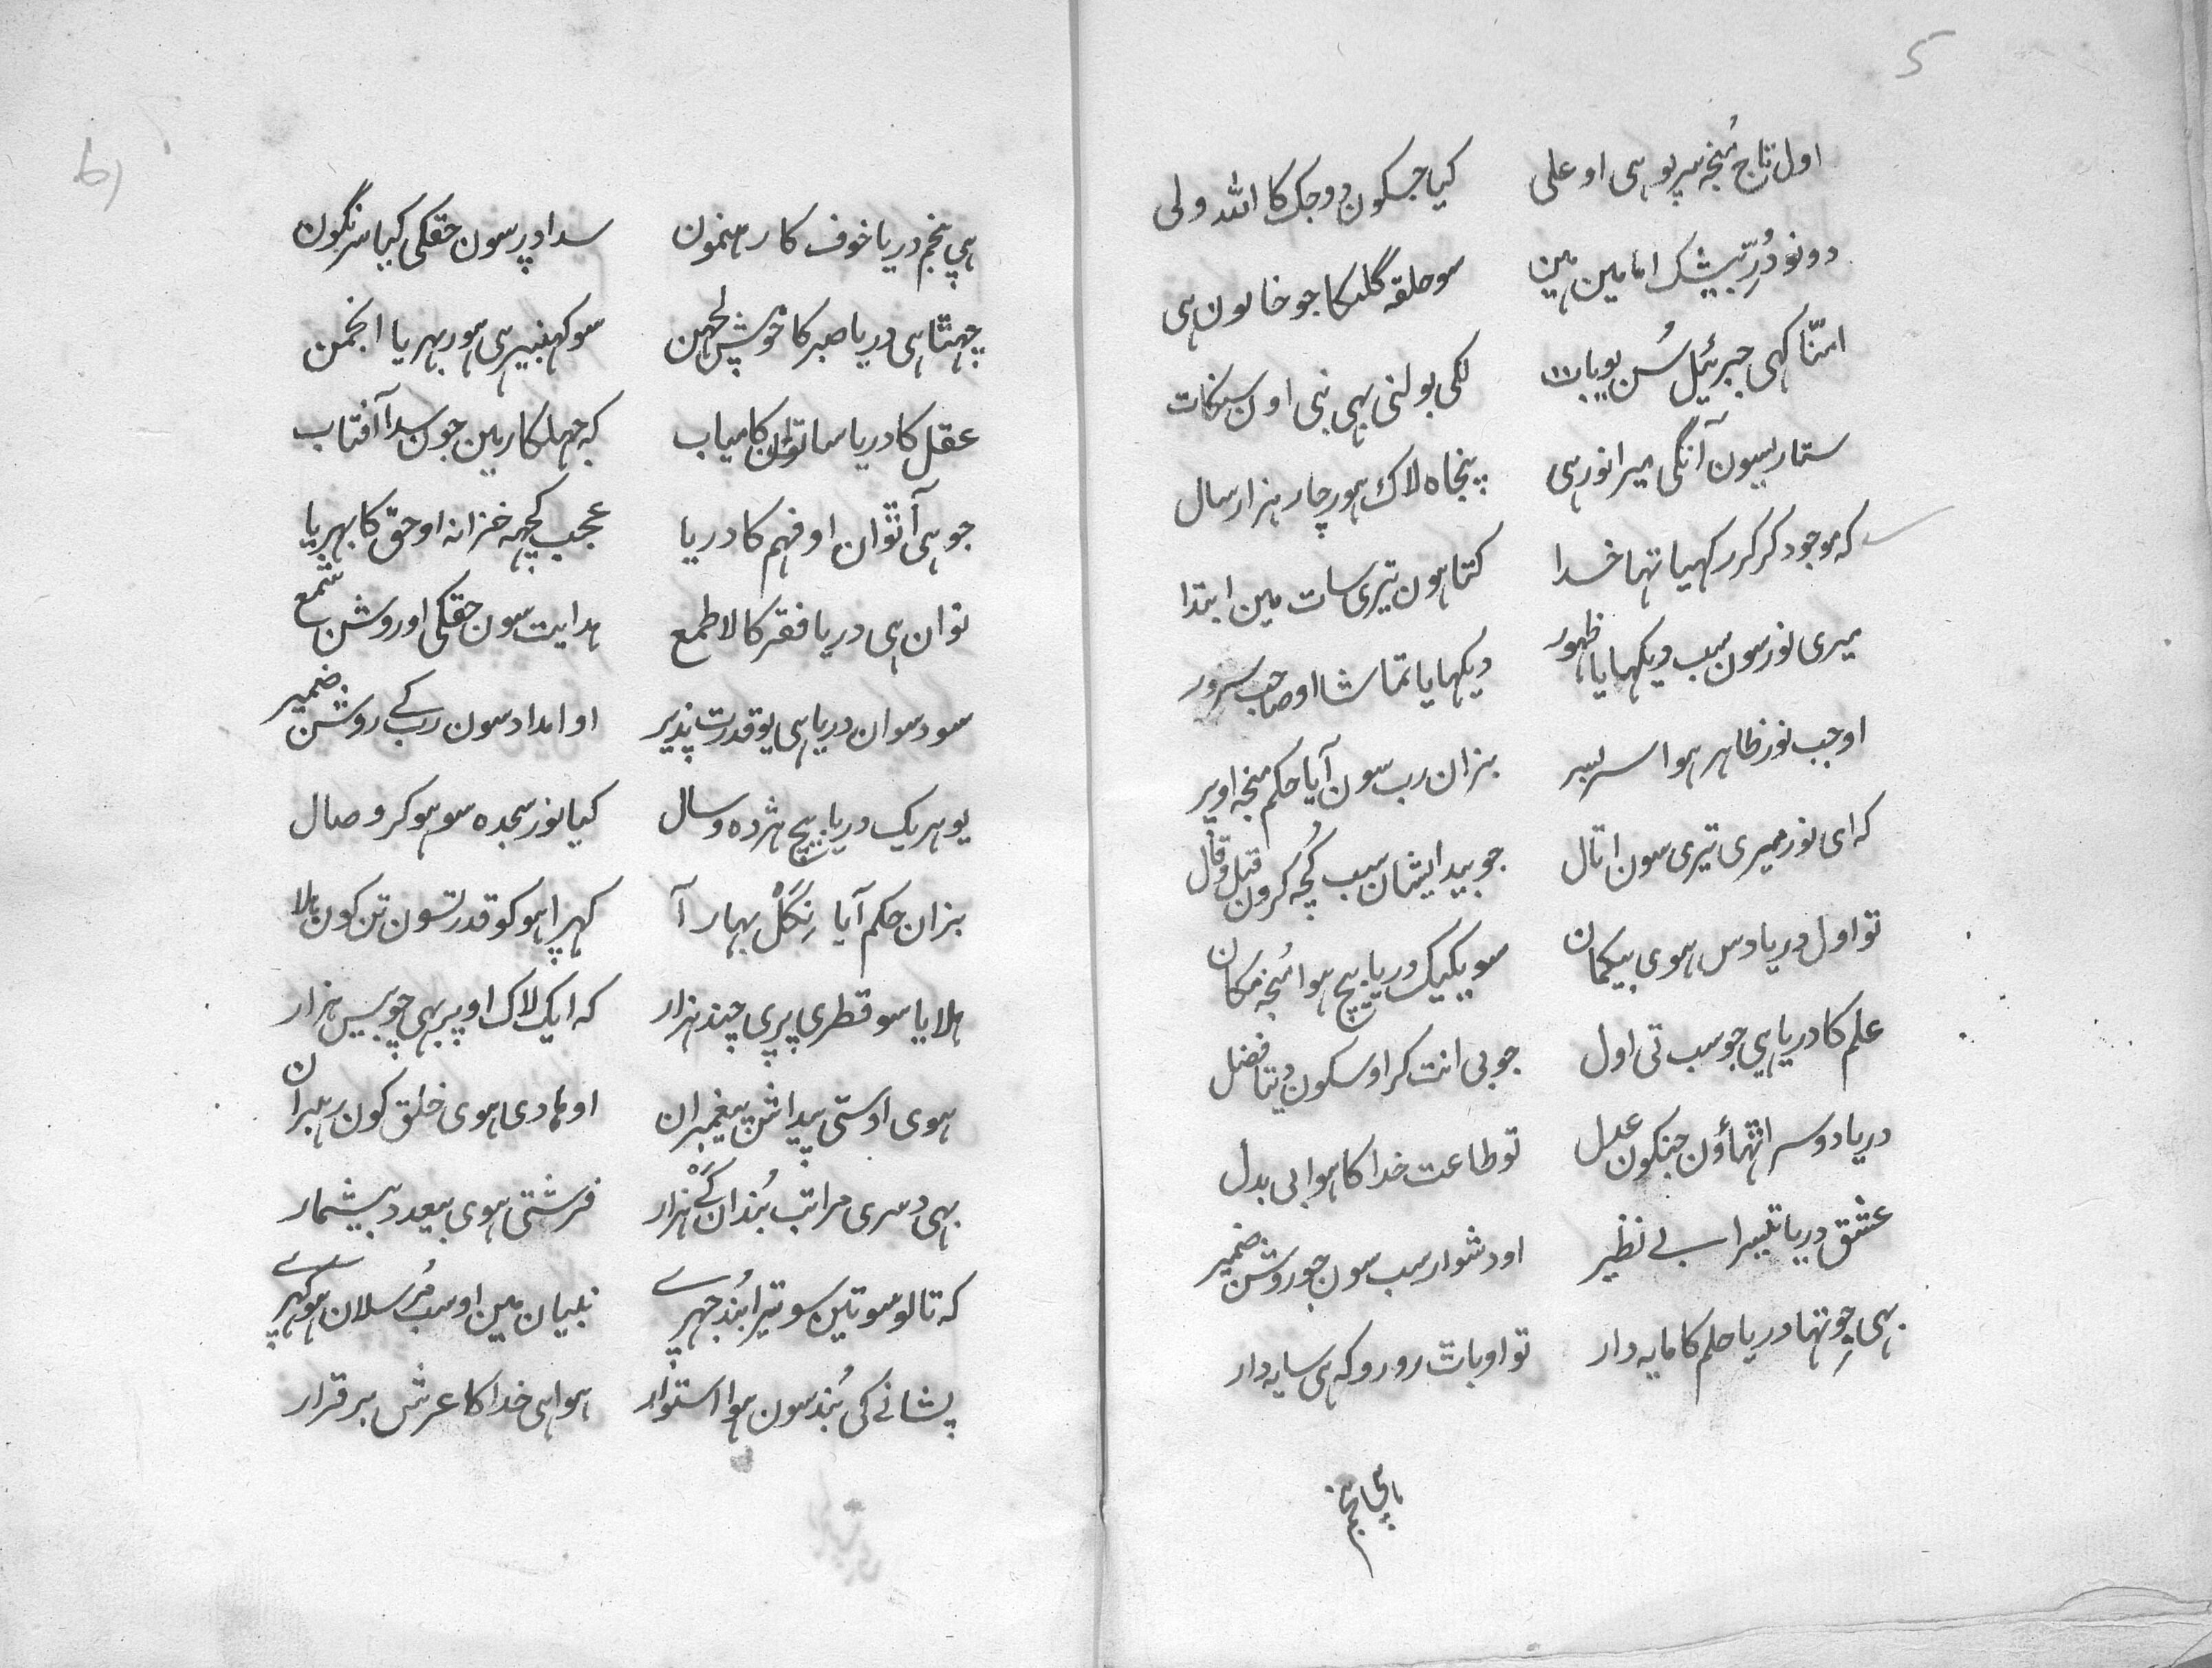 5
اول تاج مُنجہ سر پو ہی او علی کیا جسکون دوجک کا اللہ ولی
دونو دُرِّ بیشک امامین ہین سو حلقہ گلکا جو خاتون ہی
اتنا کہی جبرئیل سُن یو بات لکی بولنی بہی نبی اون سنگات
ستاریسون آنگی میرا نور ہی پنجاہ لاک ہور چار ہزار سال
کہ موجود کر کر رکہیا تہا خدا کتا ہون تیری سات مین ابتدا
میری نور سون سب دیکہایا ظہور دیکہایا تماشا او صاحب سرور
او جب نور ظاہر ہوا سر بسر بزان رب سون آیا حکم منجہ اوپر
کہ ای نور میری تیری سون اتال جو پیدایشان سب کُچہ کرون قیل وقال
تو اول دریا دس ہوی بیکمان سو یکیک دریا پیچ ہوا مُنجہ مکان
علم کا دریا ہی جو سب تی اول جو بی انت کر اوسکون دیتا فضل
دریا دوسرا تہاؤن جنکون عدل تو طاعت خدا کا ہوا بی بدل
عشق دریا تیسرا بے نظیر او دشوار سب سون جو روشن ضمیر
ہی چوتہا دریا حلم کا مایہ دار تو او بات رو روکہ ہی سایہ دار
ہی پنجم
6
ہی پنجم دریا خوف کا رہنمون سدا دپر سون حقکی کیا سرنگون
چہٹا ہی دریا صبر کا خوش لحن سو کہنبیر ہی ہور بہریا انجمن
عقل کا دریا ساتوان کامیاب کہ جہلکار مین جون سدا آفتاب
جو ہی آٹوان او فہم کا دریا عجب کچہہ خزانہ او حق کا بہریا
نوان ہی دریا فقر کا لاطمع ہدایت سون حقکی او روشن شمع
سو دسوان دریا ہی یو قدرت پذیر او امداد سون رب کے روشن ضمیر
یو ہر یک دریا پیچ ہژدہ و سال کیا نور سجدہ سو ہو کر وصال
بزان حکم آیا نِکَلْ بہار آ کہرا ہو کو قدرتسون تن کون ہلا
ہلایا سو قطری پری چند ہزار کہ ایک لاک اوپر بہی چوبیس ہزار
ہوی اوستی پیداش پیغمبران او ہادی ہوی خلق کون رہبران
بہی دسری مراتب بُندان کے ہزار فرشتی ہوی بیعدد بیشمار
کہ تالو سو تین سو تیرا بُند جہرے نبیان مین او سب مُرسلان ہو کہرے
پشانے کی بُند سون ہوا استوار ہوا ہی خدا کا عرش برقرار